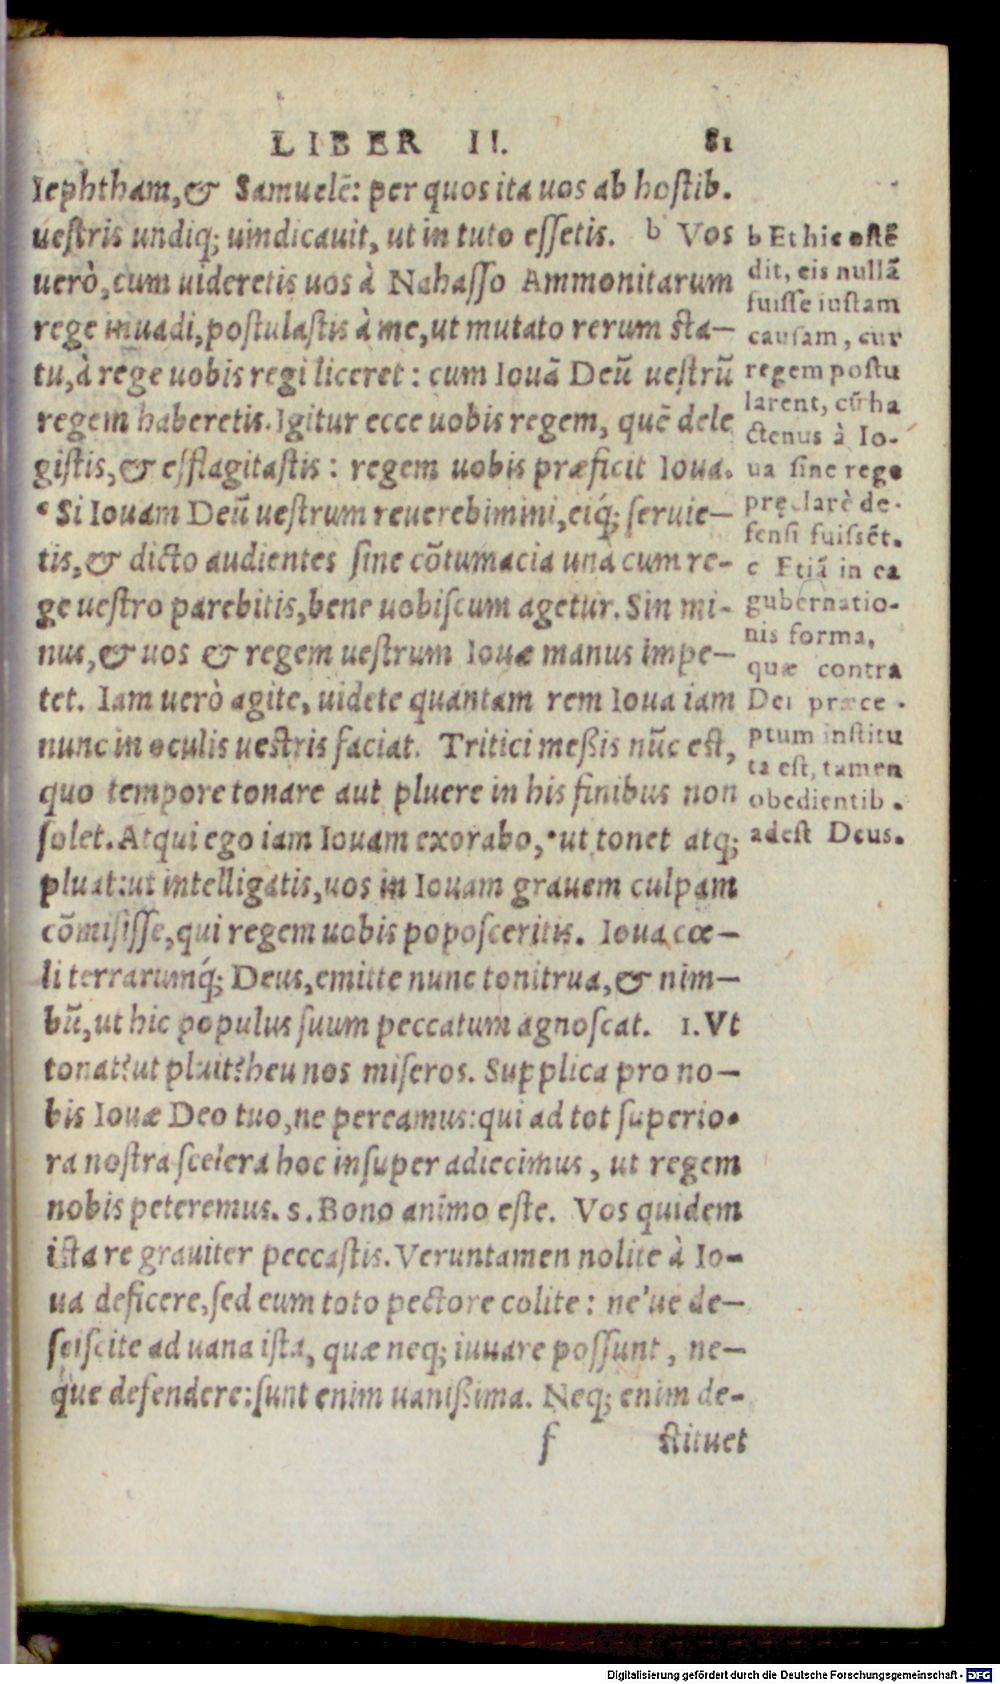 LIBER II. 81
Iephtham, & Samuelē: per quos ita uos ab hostib.
uestris undiq; uindicauit, ut in tuto essetis. b Vos
uerò, cum uideretis uos à Nahasso Ammonitarum
rege inuadi, postulastis à me, ut mutato rerum sta-
tu, à rege uobis regi liceret: cum Iouā Deū uestrū
regem haberetis. Igitur ecce uobis regem, quē dele
gistis, & efflagitastis: regem uobis præficit Ioua.
c Si Iouam Deū uestrum reuerebimini, eiq́; seruie-
tis, & dicto audientes sine cōtumacia unà cum re-
ge uestro parebitis, bene uobiscum agetur. Sin mi-
nus, & uos & regem uestrum Iouæ manus impe-
tet. Iam uerò agite, uidete quantam rem Ioua iam
nunc in oculis uestris faciat. Tritici meßis nūc est,
quo tempore tonare aut pluere in his finibus non
solet. Atqui ego iam Iouam exorabo, ut tonet atq;
pluat: ut intelligatis, uos in Iouam grauem culpam
cōmisisse, qui regem uobis poposceritis. Ioua cœ-
li terrarumq́; Deus, emitte nunc tonitrua, & nim-
bū, ut hic populus suum peccatum agnoscat. I. Vt
tonat? ut pluit? heu nos miseros. Supplica pro no-
bis Iouæ Deo tuo, ne pereamus: qui ad tot superio-
ra nostra scelera hoc insuper adiecimus, ut regem
nobis peteremus. S. Bono animo este. Vos quidem
ista re grauiter peccastis. Veruntamen nolite à Io-
ua deficere, sed eum toto pectore colite: ne'ue de-
sciscite ad uana ista, quæ neq; iuuare possunt, ne-
que defendere: sunt enim uanißima. Neq; enim de-
f stituet
b Et hic ostē
dit, eis nullā
fuisse iustam
causam, cur
regem postu
larent, cū ha
ctenus à Io-
ua sine rege
pręclarè de-
fensi fuissēt.
c Etiā in ea
gubernatio-
nis forma,
quæ contra
Dei præce-
ptum institu
ta est, tamen
obedientib.
adest Deus.
Digitalisierung gefördert durch die Deutsche Forschungsgemeinschaft - DFG